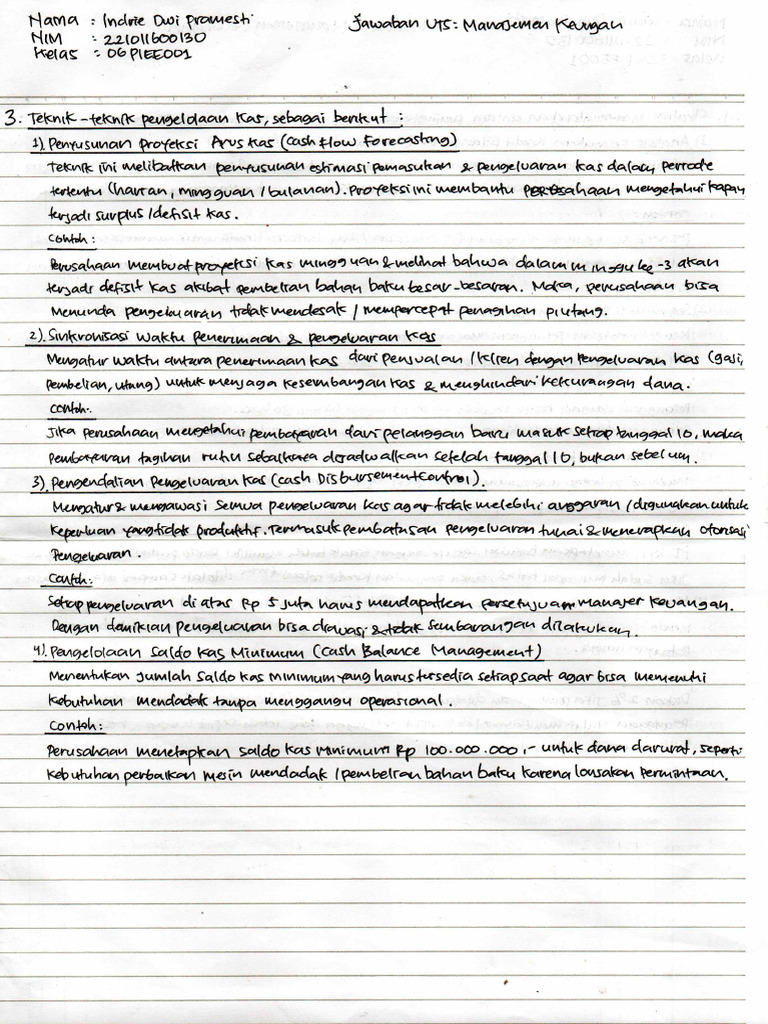 Nama : Indrie Dwi Pramesti
Jawaban UTS : Manajemen Keuangan
NIM : 221011600130
Kelas : 06PIEE001
3. Teknik-teknik pengelolaan kas, sebagai berikut :
1). Penyusunan Proyeksi Arus Kas (Cash Flow Forecasting)
Teknik ini melibatkan penyusunan estimasi pemasukan & pengeluaran kas dalam periode
tertentu (harian, mingguan / bulanan). Proyeksi ini membantu perusahaan mengetahui kapan
terjadi surplus / defisit kas.
Contoh :
Perusahaan membuat proyeksi kas mingguan & melihat bahwa dalam minggu ke-3 akan
terjadi defisit kas akibat pembelian bahan baku besar-besaran. Maka, perusahaan bisa
Menunda pengeluaran tidak mendesak / mempercepat penagihan piutang.
2). Sinkronisasi waktu penerimaan & pengeluaran kas
Mengatur waktu antara penerimaan kas dari penjualan / klien dengan pengeluaran kas (gaji,
pembelian, utang) untuk menjaga keseimbangan kas & menghindari kekurangan dana.
Contoh:
Jika perusahaan mengetahui pembayaran dari pelanggan baru masuk setiap tanggal 10, maka
pembayaran tagihan rutin sebaiknya dijadwalkan setelah tanggal 10, bukan sebelum.
3). Pengendalian Pengeluaran Kas (Cash Disbursement Control).
Mengatur & mengawasi semua pengeluaran kas agar tidak melebihi anggaran / digunakan untuk
keperluan yang tidak produktif. Termasuk pembatasan pengeluaran tunai & menerapkan otorisasi
Pengeluaran.
Contoh:
Setiap pengeluaran di atas Rp 5 juta harus mendapatkan persetujuan manajer keuangan.
Dengan demikian pengeluaran bisa diawasi & tidak sembarangan dilakukan.
4). Pengelolaan Saldo Kas Minimum (Cash Balance Management)
Menentukan jumlah saldo kas minimum yang harus tersedia setiap saat agar bisa memenuhi
kebutuhan mendadak tanpa menggangu operasional.
Contoh:
Perusahaan menetapkan saldo kas minimum Rp 100.000.000,- untuk dana darurat, seperti
kebutuhan perbaikan mesin mendadak / pembelian bahan baku karena lonjakan permintaan.